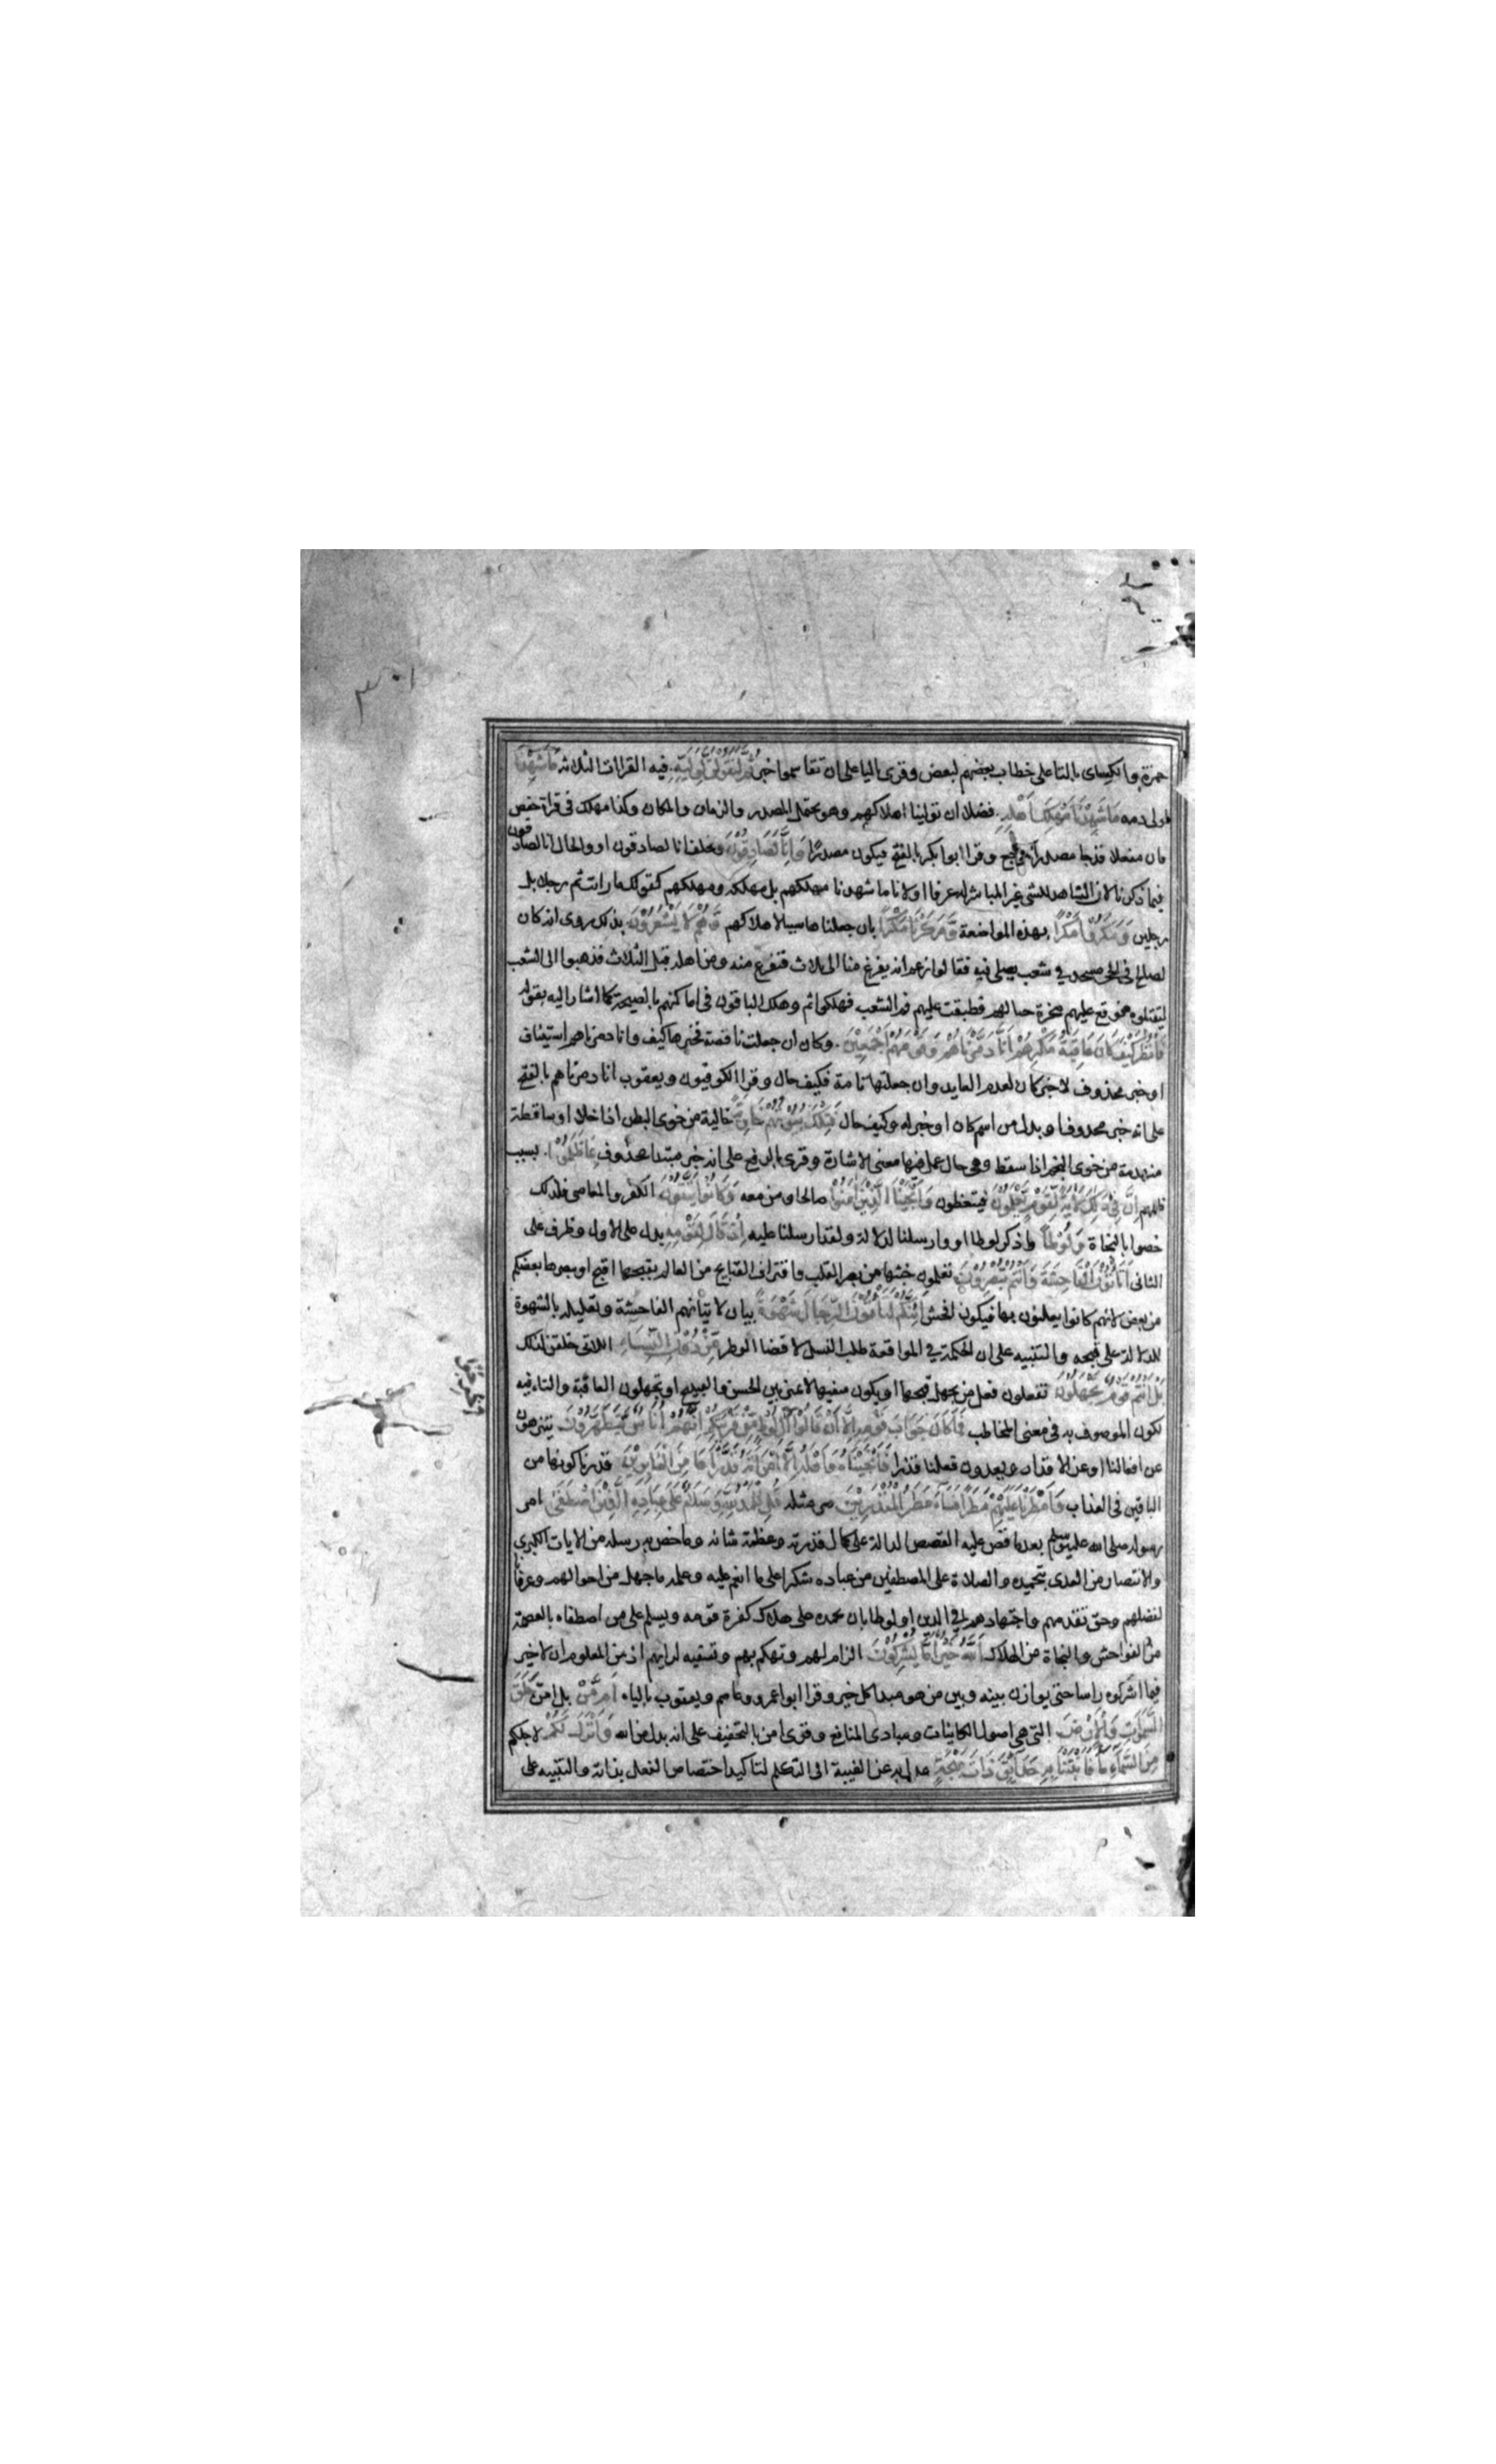 حمزة والكساى بالتا على خطاب بعضهم لبعض وقرى باليا على ان تقاسموا خبر ثُمَّ لَنَقُولَنَّ لِوَلِيِّهِ فيه القراات الثلاثه مَا شَهِدْنَا
لولى دمه مَا شَهِدْنَا مَهْلِكَ اَهْلِهِ فضلا ان تولينا اهلاكهم وهو يحتمل المصدر والزمان والمكان وكذا مهلك فى قراة حفص
فان مفعلا قد جا مصدرا كمرجع وقرا ابو بكر بالفتح فيكون مصدرًا وَاِنَّا لَصَادِقُوْنَ ونحلف انا لصادقون او والحال انا لصادقون
فيما ذكرنا لان الشاهد للشى غير المباشر له عرفا او لانا ما شهدنا مهلكهم بل مهلكه ومهلكهم كقولك ما رايت ثم رجلا بل
رجلين وَمَكَرُوْا مَكْرًا بهذه المواضعة وَمَكَرْنَا مَكْرًا بان جعلناها سببا لاهلاكهم وَهُمْ لَا يَشْعُرُوْنَ بذلك روى انه كان
لصالح فى الحجر مسجد فى شعب يصلى فيه فقالوا زعم انه يفرغ منا الى ثلاث فنفرغ منه ومن اهله قبل الثلاث فذهبوا الى الشعب
ليقتلوه فوقع عليهم صخرة حيالهم فطبقت عليهم فم الشعب فهلكوا ثم وهلك الباقون فى اماكنهم بالصيحة كما اشار اليه بقوله
فَانْظُرْ كَيْفَ كَانَ عَاقِبَةُ مَكْرِهِمْ اَنَّا دَمَّرْنَاهُمْ وَقَوْمَهُمْ اَجْمَعِيْنَ وكان ان جعلت ناقصة فخبرها كيف وانا دمرناهم استيناف
او خبر محذوف لا خبر كان لعدم العايد وان جعلتها تامة فكيف حال وقرا الكوفيون ويعقوب انا دمرناهم بالفتح
على انه خبر محذوف او بدل من اسم كان او خبر له وكيف حال فَتِلْكَ بُيُوْتُهُمْ خَاوِيَةً خالية من خوى البطن اذا خلا او ساقطة
منهدمة من خوى النجم اذا سقط وهى حال عمل فيها معنى الاشارة وقرى بالرفع على انه خبر مبتدا محذوف بِمَا ظَلَمُوْا بسبب
ظلمهم اِنَّ فِىْ ذٰلِكَ لَاٰيَةً لِقَوْمٍ يَعْلَمُوْنَ فيتعظون وَاَنْجَيْنَا الَّذِيْنَ اٰمَنُوْا صالحا ومن معه وَكَانُوْا يَتَّقُوْنَ الكفر والمعاصى فلذلك
خصوا بالنجاة وَلُوْطًا واذكر لوطا او وارسلنا لدلالة ولقد ارسلنا عليه اِذْ قَالَ لِقَوْمِهِ بدل على الاول وظرف على
الثانى اَتَاْتُوْنَ الْفَاحِشَةَ وَاَنْتُمْ تُبْصِرُوْنَ تعلمون فحشها من بصر القلب واقتراف القبايح من العالم بقبحها اقبح او يبصرها بعضكم
من بعض لانهم كانوا يعلنون بها فيكون افحش اَئِنَّكُمْ لَتَاْتُوْنَ الرِّجَالَ شَهْوَةً بيان لاتيانهم الفاحشة وتعليله بالشهوة
للدلالة على قبحه والتنبيه على ان الحكمة فى المواقعة طلب النسل لا قضا الوطر مِنْ دُوْنِ النِّسَاءِ اللاتى خلقن لذلك
بَلْ اَنْتُمْ قَوْمٌ تَجْهَلُوْنَ تفعلون فعل من يجهل قبحها او يكون سفيها لا يميز بين الحسن والقبيح او تجهلون العاقبة والتاء فيه
لكون الموصوف به فى معنى المخاطب فَمَا كَانَ جَوَابَ قَوْمِهِ اِلَّا اَنْ قَالُوْا اَخْرِجُوْا اٰلَ لُوْطٍ مِنْ قَرْيَتِكُمْ اِنَّهُمْ اُنَاسٌ يَتَطَهَّرُوْنَ يتنزهون
عن افعالنا او عن الاقذار ويعدون فعلنا قذرا فَاَنْجَيْنَاهُ وَاَهْلَهُ اِلَّا امْرَاَتَهُ قَدَّرْنَاهَا مِنَ الْغَابِرِيْنَ قدرنا كونها من
الباقين فى العذاب وَاَمْطَرْنَا عَلَيْهِمْ مَطَرًا فَسَاءَ مَطَرُ الْمُنْذَرِيْنَ مر مثله قُلِ الْحَمْدُ لِلّٰهِ وَسَلَامٌ عَلٰى عِبَادِهِ الَّذِيْنَ اصْطَفٰى امر
رسوله صلى الله عليه وسلم بعد ما قص عليه القصص الدالة على كمال قدرته وعظمة شانه وما خص به رسله من الايات الكبرى
والانتصار من العدى بتحميده والصلاة على المصطفين من عباده شكرا على ما انعم عليه وعلمه ما جهل من احوالهم وعرفانا
لفضلهم وحق تقدمهم واجتهادهم فى الدين او لوطا بان يحمده على هلاك كفرة قومه ويسلم على من اصطفاه بالعصمة
من الفواحش والنجاة من الهلاك اٰللّٰهُ خَيْرٌ اَمَّا يُشْرِكُوْنَ الزام لهم وتهكم بهم وتسفيه لرايهم اذ من المعلوم ان لا خير
فيما اشركوه راسا حتى يوازن بينه وبين من هو مبدا كل خير وقرا ابو عمرو وعاصم ويعقوب بالياء اَمَّنْ بل امن خَلَقَ
السَّمٰوَاتِ وَالْاَرْضَ التى هى اصول الكاينات ومبادى المنافع وقرى امن بالتخفيف على انه بدل من الله وَاَنْزَلَ لَكُمْ لاجلكم
مِنَ السَّمَاءِ مَاءً فَاَنْبَتْنَا بِهِ حَدَائِقَ ذَاتَ بَهْجَةٍ عدل به عن الغيبة الى التكلم لتاكيد اختصاص الفعل بذاته والتنبيه على